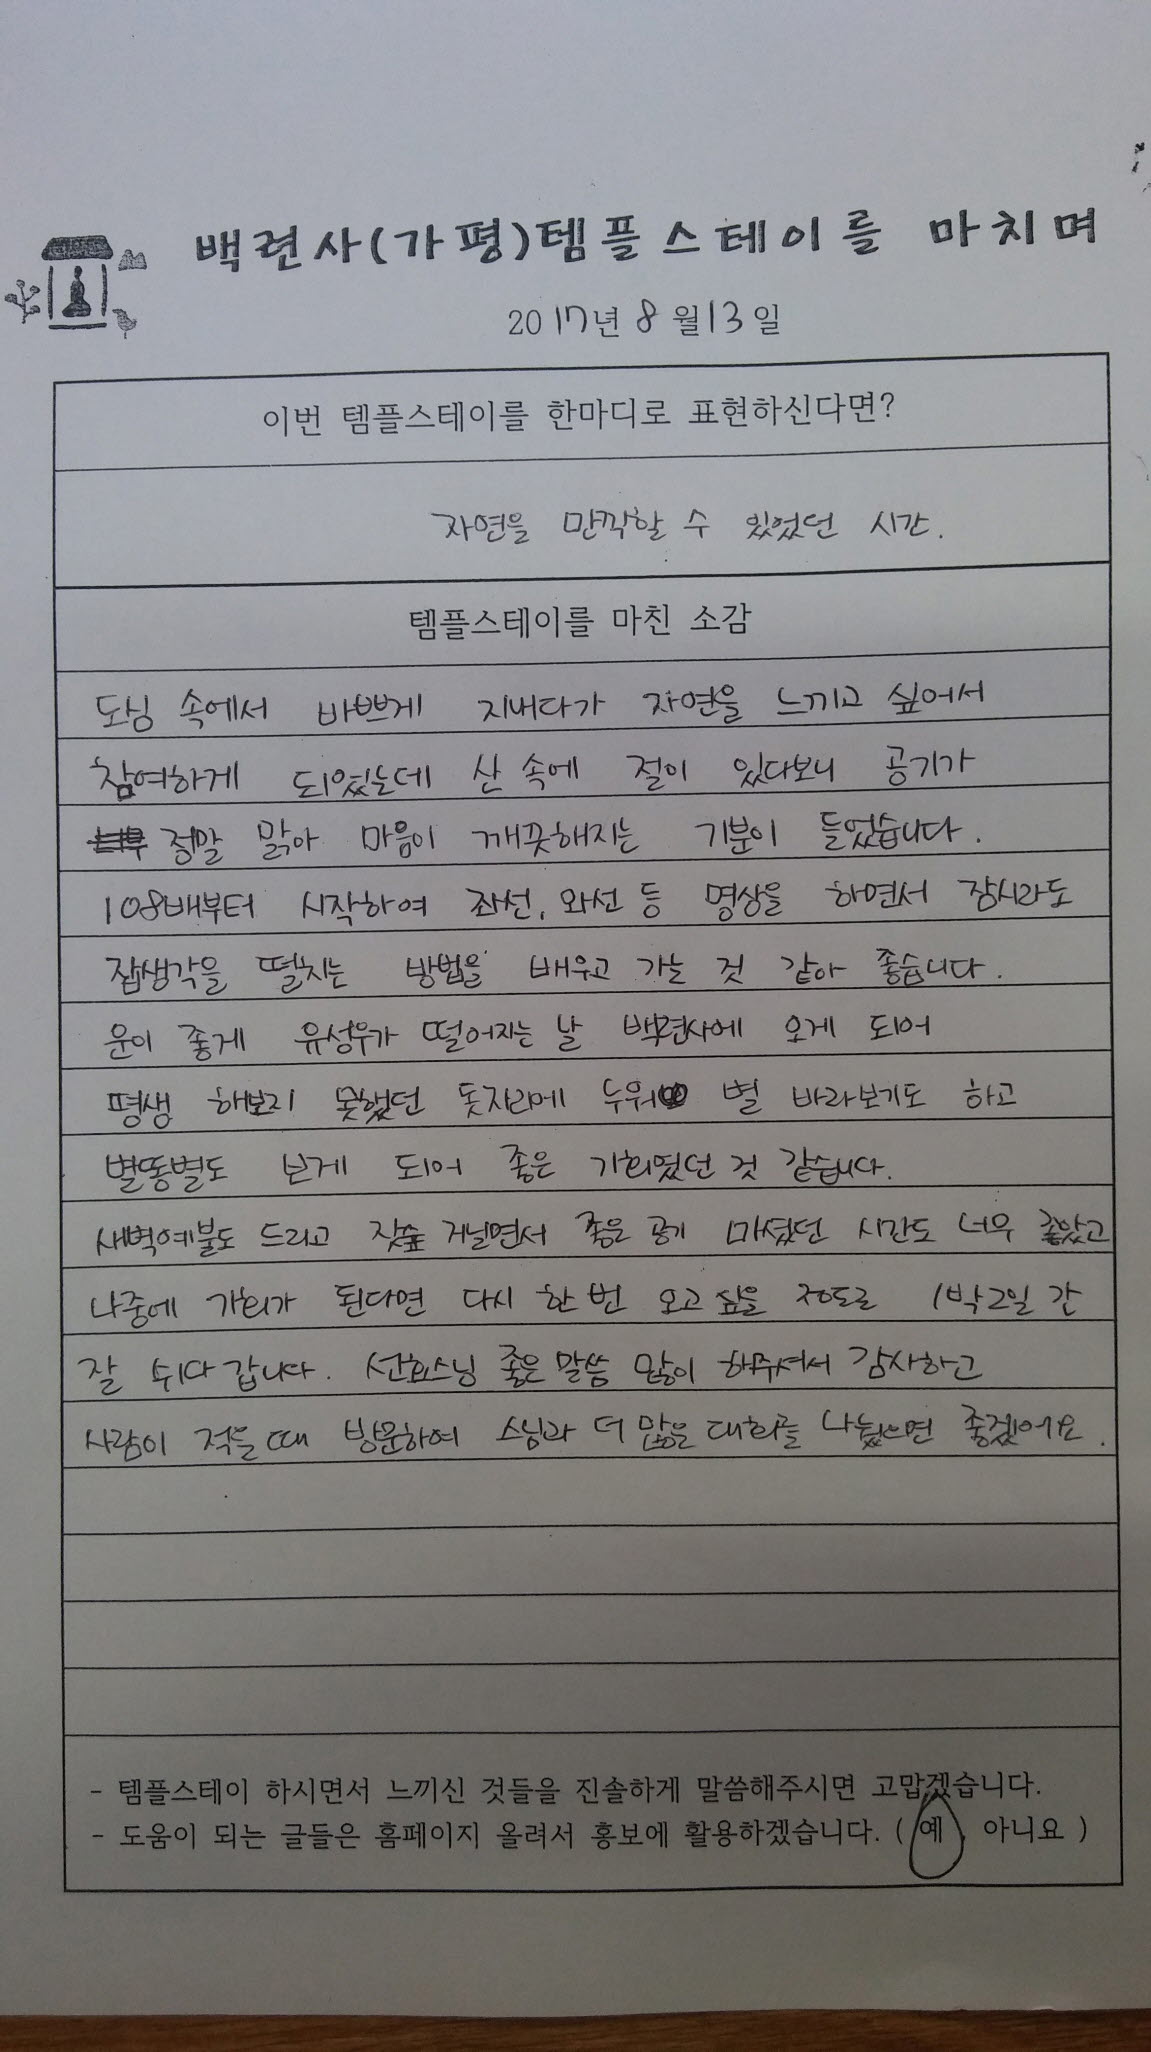 백련사(가평)템플스테이를 마치며
2017년 8월 13일
이번 템플스테이를 한마디로 표현하신다면?
자연을 만끽할 수 있었던 시간.
템플스테이를 마친 소감
도심 속에서 바쁘게 지내다가 자연을 느끼고 싶어서
참여하게 되었는데 산 속에 절이 있다보니 공기가
정말 맑아 마음이 깨끗해지는 기분이 들었습니다.
108배부터 시작하여 좌선, 와선 등 명상을 하면서 잠시라도
잡생각을 떨치는 방법을 배우고 가는 것 같아 좋습니다.
운이 좋게 유성우가 떨어지는 날 백련사에 오게 되어
평생 해보지 못했던 돗자리에 누워 별 바라보기도 하고
별똥별도 보게 되어 좋은 기회였던 것 같습니다.
새벽예불도 드리고 잣숲 거닐면서 좋은 공기 마셨던 시간도 너무 좋았고
나중에 기회가 된다면 다시 한 번 오고 싶을 정도로 1박2일 간
잘 쉬다 갑니다. 선효스님 좋은 말씀 많이 해주셔서 감사하고
사람이 적을 때 방문하여 스님과 더 많은 대화를 나눴으면 좋겠어요.
- 템플스테이 하시면서 느끼신 것들을 진솔하게 말씀해주시면 고맙겠습니다.
- 도움이 되는 글들은 홈페이지 올려서 홍보에 활용하겠습니다. ( 예 , 아니요 )